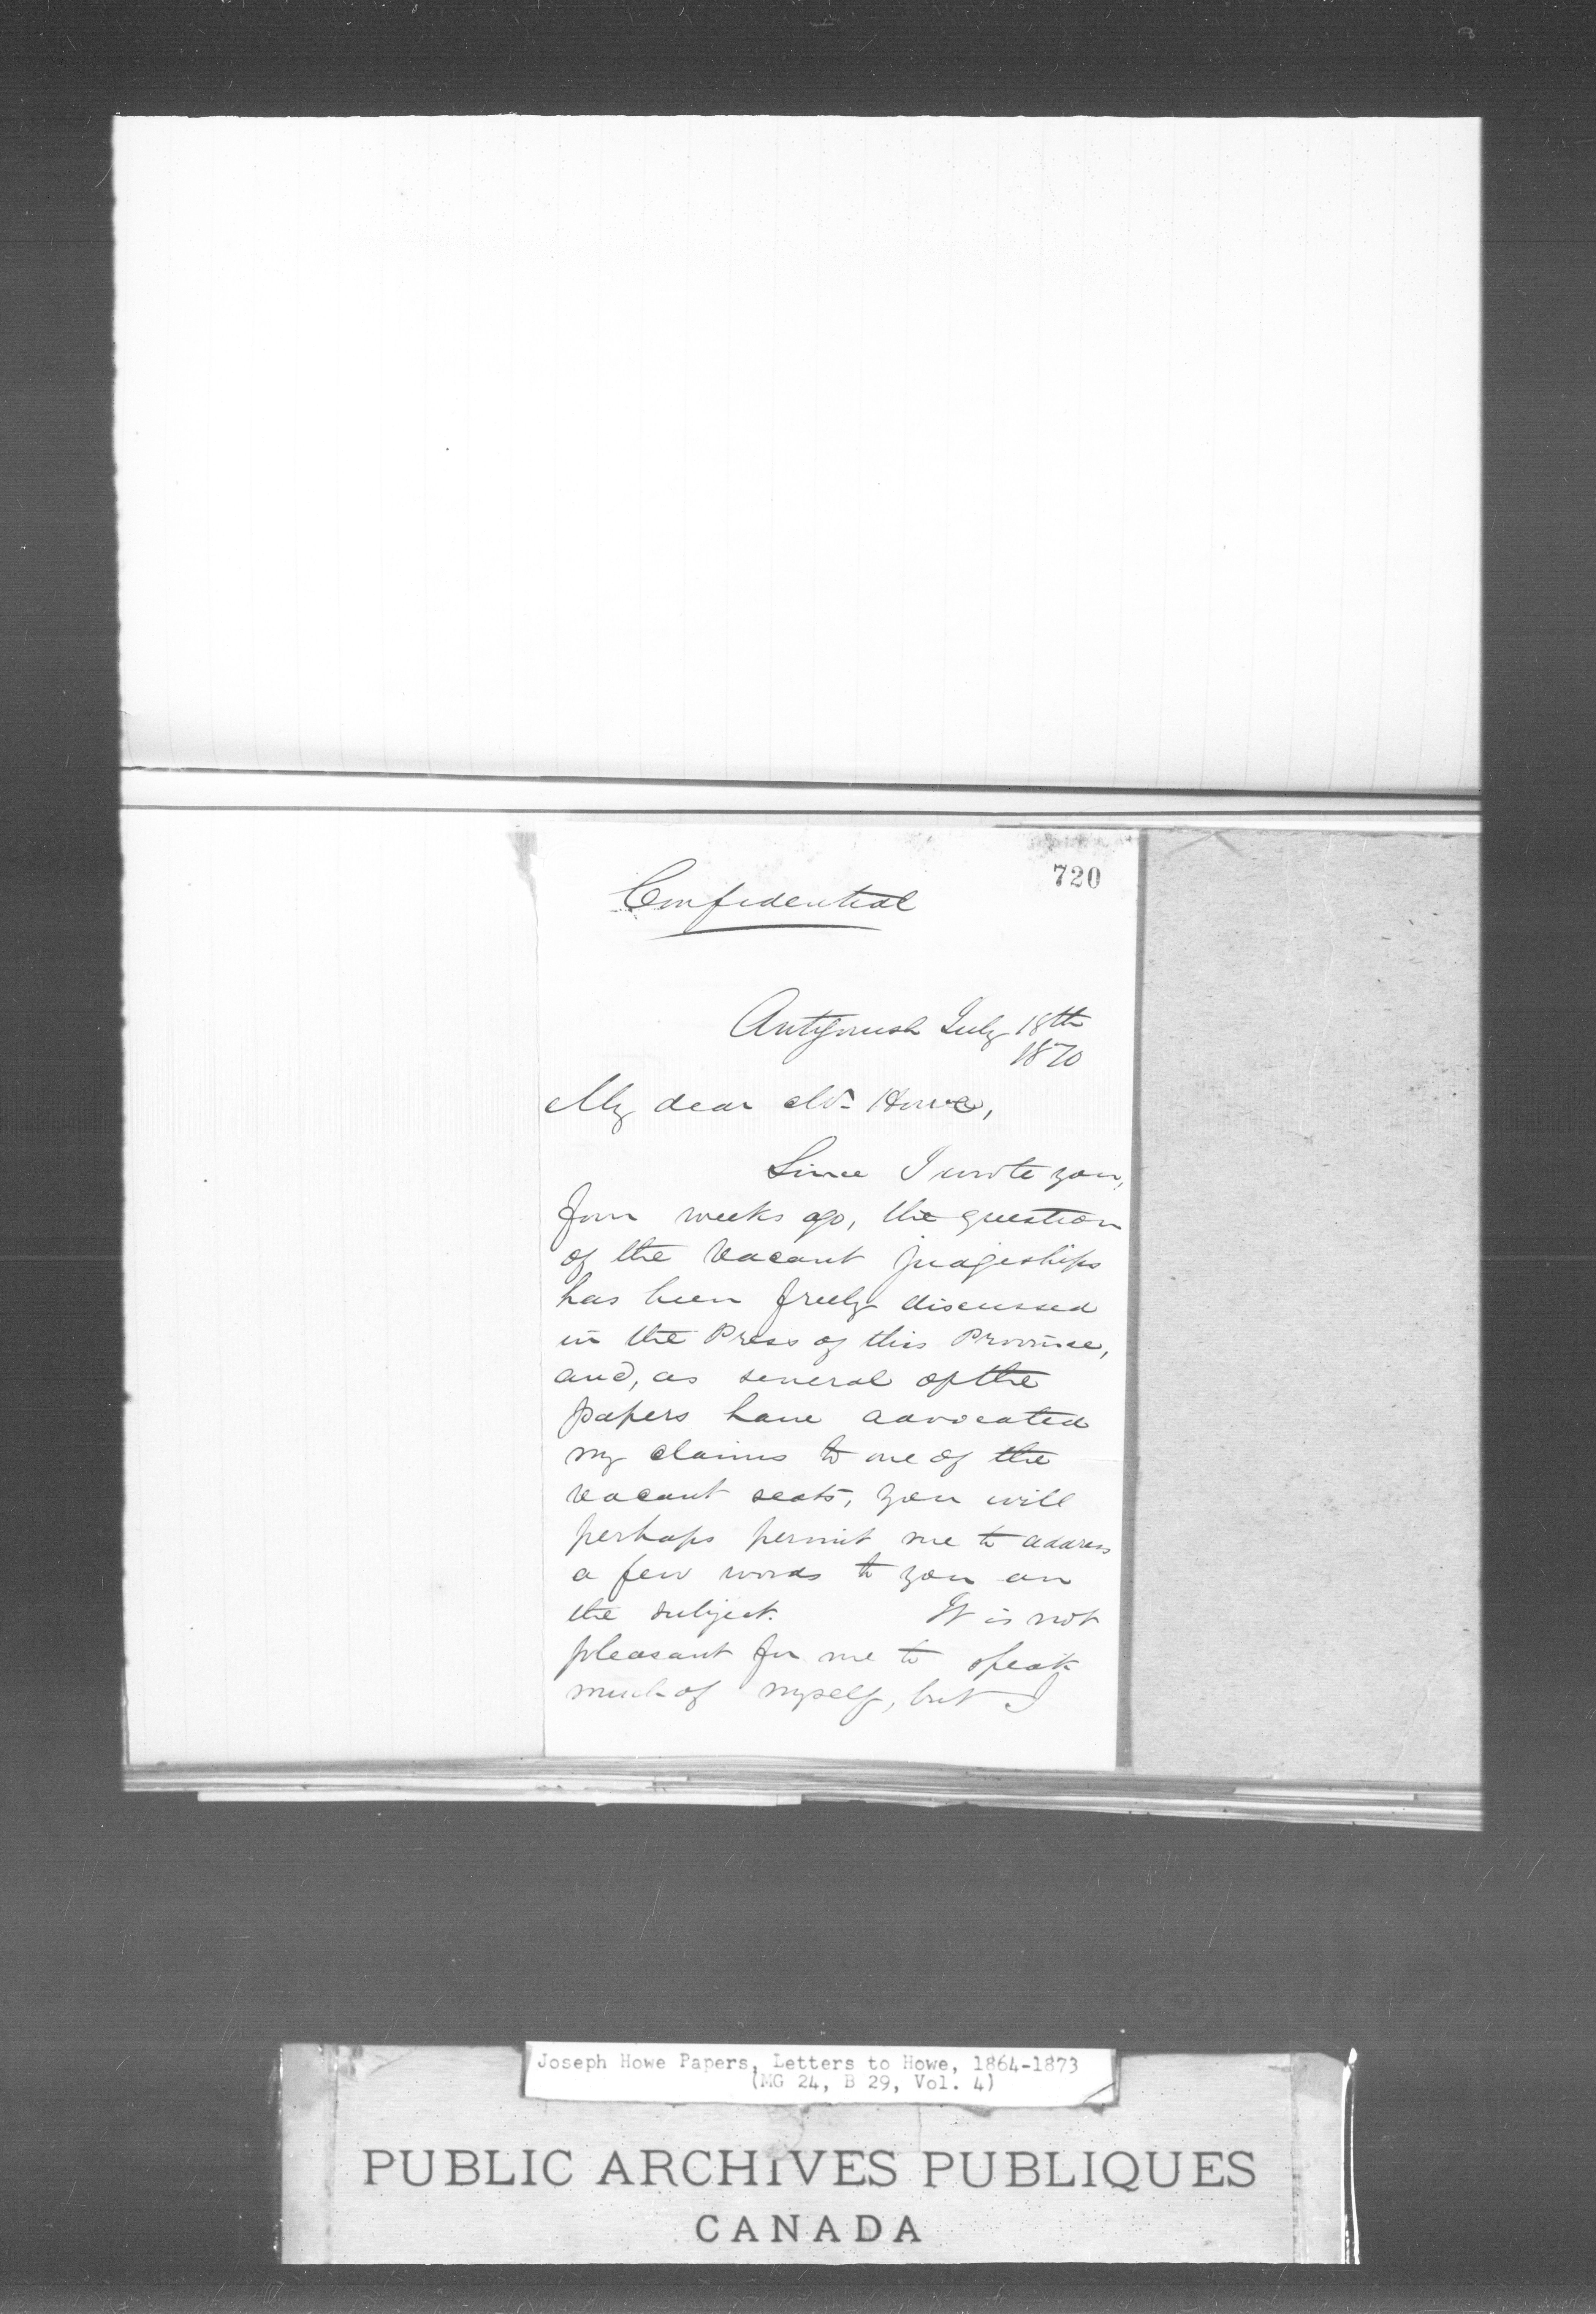 720
Confidential
Antigonish July 18th
1870
My dear Mr. Howe,
Since I wrote you,
four weeks ago, the question
of the vacant judgeships
has been freely discussed
in the Press of this Province,
and, as several of the
papers have advocated
my claims to one of the
vacant seats, you will
perhaps permit me to address
a few words to you on
the subject. It is not
pleasant for me to speak
much of myself, but I
Joseph Howe Papers, Letters to Howe, 1864-1873
(MG 24, B 29, Vol. 4)
PUBLIC ARCHIVES PUBLIQUES
CANADA